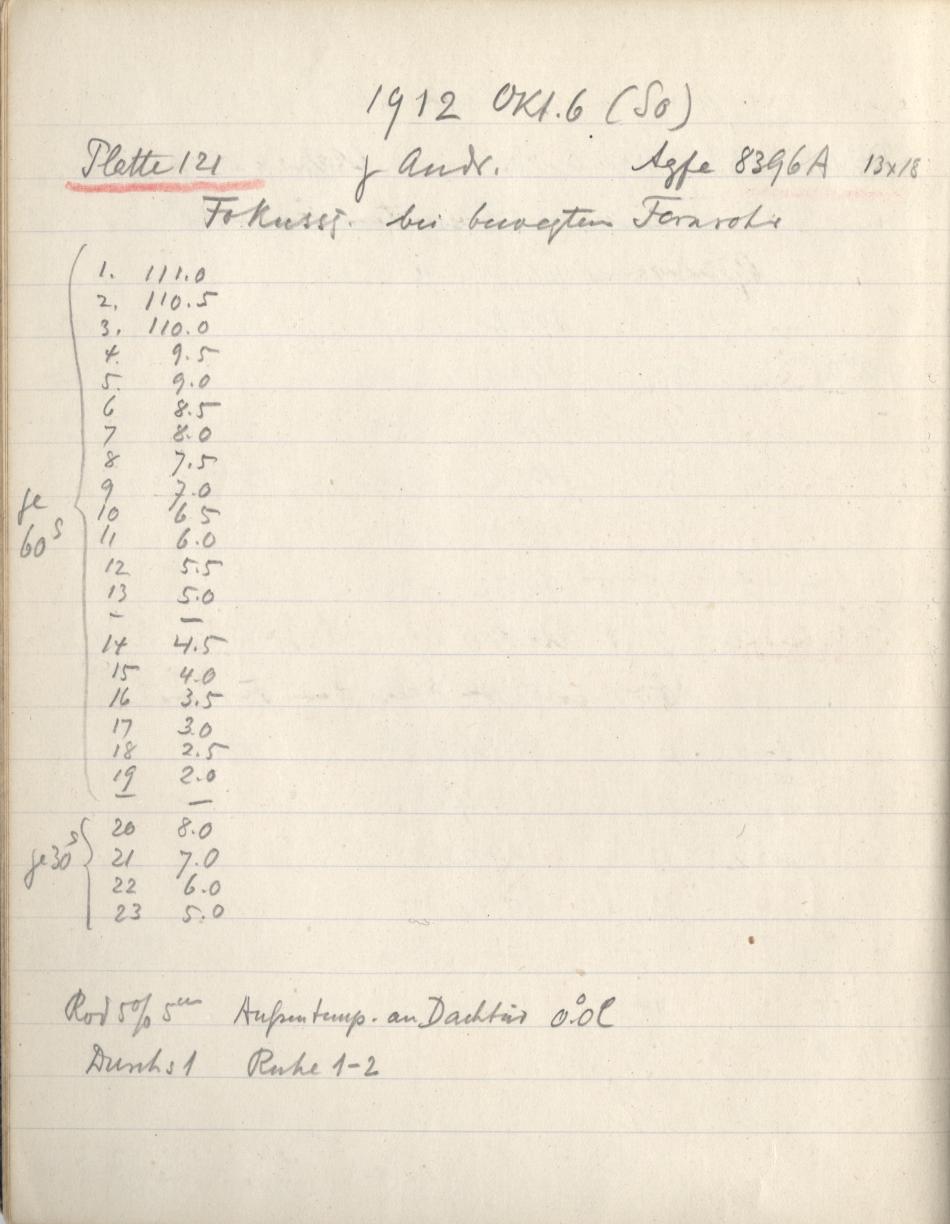 1912 Okt. 6 (So)
Platte 121 γ Andr. Agfa 8396A 13x18
Fokussg. bei bewegtem Fernrohr
1. 111.0
2. 110.5
3. 110.0
4. 9.5
5. 9.0
6 8.5
7 8.0
8 7.5
9 7.0
je 60s
10 6 5
11 6.0
12 5.5
13 5.0
– –
14 4.5
15 4.0
16 3.5
17 3.0
18 2.5
19 2.0
– –
20 8.0
je 30s
21 7.0
22 6.0
23 5.0
Rod 5% 5m Außentemp. an Dachtür 0.°0C
Durchs 1 Ruhe 1–2